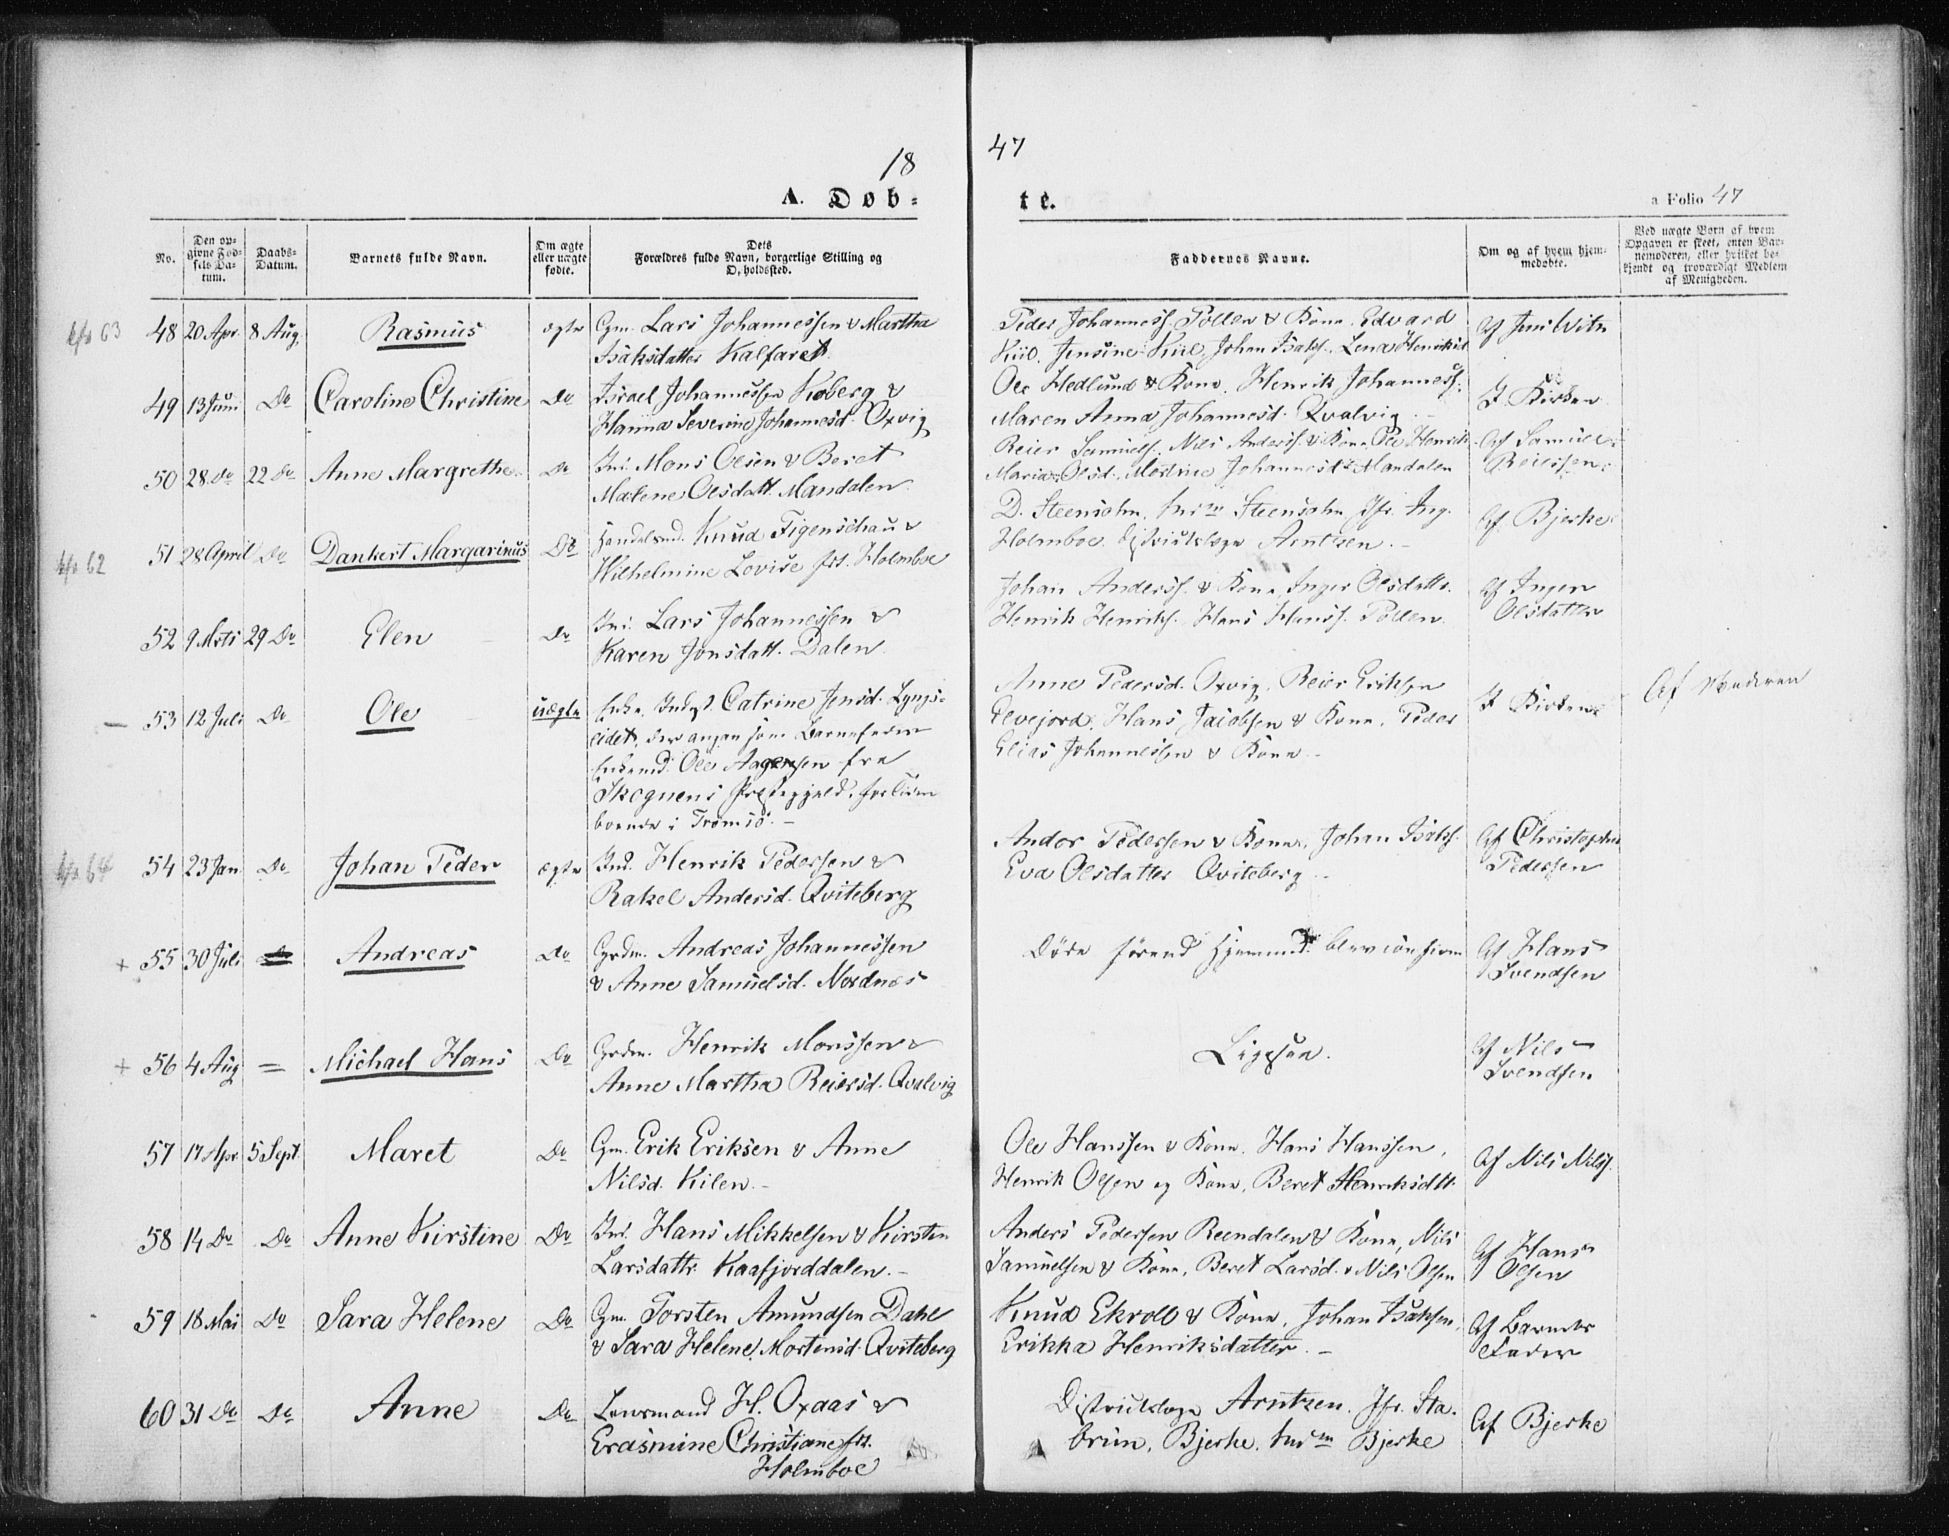 18 47
A. Døb- te. a Folio 47
No. Den opgivne Fødsels Datum. Daabs-Datum. Barnets fulde Navn. Om ægte eller uægte fødte. Dets Forældres fulde Navn, borgerlige Stilling og Opholdssted. Faddernes Navne. Om og af hvem hjemmedøbte. Ved uægte Børn af hvem Opgaven er skeet, enten Barnemoderen, eller hvilket bekjendt og troværdigt Medlem af Menigheden.
63 48 20 Apr. 8 Aug. Rasmus ægte Gm. Lars Johannessen & Martha Peder Johanness. Pollen & Kone. Edvard Af Jens Witn
Isaksdatter Kalfaret. Kiil. Jensine Kiil, Johan Isaks. Lena Henriksd
49 13 Juni Do Caroline Christine Do Israel Johannessen Koberg & Ole Hedlund & Kone. Henrik Johanness. I Kirken
Hanna Severine Johannesd. Oxvig Maren Anna Johannesd. Qvalvig.
50 28 do 22 Do Anne Margrethe Do Ind. Mons Olsen & Beret Reier Samuels. Nils Anders. & Kone. Ole Henrik Af Samuel
Malene Olsdatt. Mandalen. Maria Olsd. Johannesd. Mandalen Reiersen.
62 51 28 April Do Dankert Margarinus Do Handelsmd. Knud Figenschau & D. Steensohn, Steensohn Jfr. Ing. Af Bjerke
Wilhelmine Lovise fød. Holmboe Holmboe. Distriktslæge Arntzen.
52 9 Mrts 29 Do Elen Do Ind. Lars Johannessen & Johan Anderss. & Kone, Inger Olsdatter. Af Inger
Karen Jonsdatt. Dalen. Henrik Henriks. Hans Hanss. Pollen. Olsdatter
— 53 12 Juli Do Ole uægte Enke Catrine Jensd. Lyngs- Anne Pedersd. Oxvig, Reier Eriksen I Kirken Af Moderen
eidet, der angav som Barnefader Elvejord, Hans Jacobsen & Kone. Peder
Enkemd. Ole Aagensen fra Elias Johannessen & Kone.
Skognens Præstegjeld, for Tiden
boende i Tromsø. —
64 54 23 Jan Do Johan Peder ægte Ind. Henrik Pedersen & Andor Pedersen & Kone, Johan Isaks. Af Christopher
Rakel Andersd. Qviteberg Eva Olsdatter Qviteberg Pedersen
+ 55 30 Juli Andreas Do Grdm. Andreas Johannessen Døde førend Hjemmed. blev Af Hans
& Anne Samuelsd. Nordnes Svendsen
+ 56 4 Aug = Michael Hans Do Grdm. Henrik Monssen & Ligesaa. Af Nils
Anne Martha Reiersd. Qvalvig Svendsen
57 17 Apr 5 Sept. Maret Do Gm. Erik Eriksen & Anne Ole Hanssen & Kone. Hans Hanssen, Af Nils Nilss.
Nilsd. Kilen. Henrik Olsen og Kone, Beret Henriksdtt.
58 14 Do Do Anne Kirstine Do Ind. Hans Mikkelsen & Kirsten Anders Pedersen Reendalen & Kone, Nils Af Hans
Larsdattr. Kaafjorddalen. Samuelsen & Kone, Beret Larsd. & Nils Olsen Olsen
59 18 Mai Do Sara Helene Do Gm. Torsten Amundsen Dahl Knud Ekroll & Kone, Johan Isaksen, Af Barnets
& Sara Helene Mortensd. Qviteberg Erikka Henriksdatter. Fader
60 31 Do Do Anne Do Lensmand H. Oxaas & Distriktslæge Arntzen. Jfr. Sta- Af Bjerke
Erasmine Christiane fød. brun, Bjerke, Bjerke
Holmboe